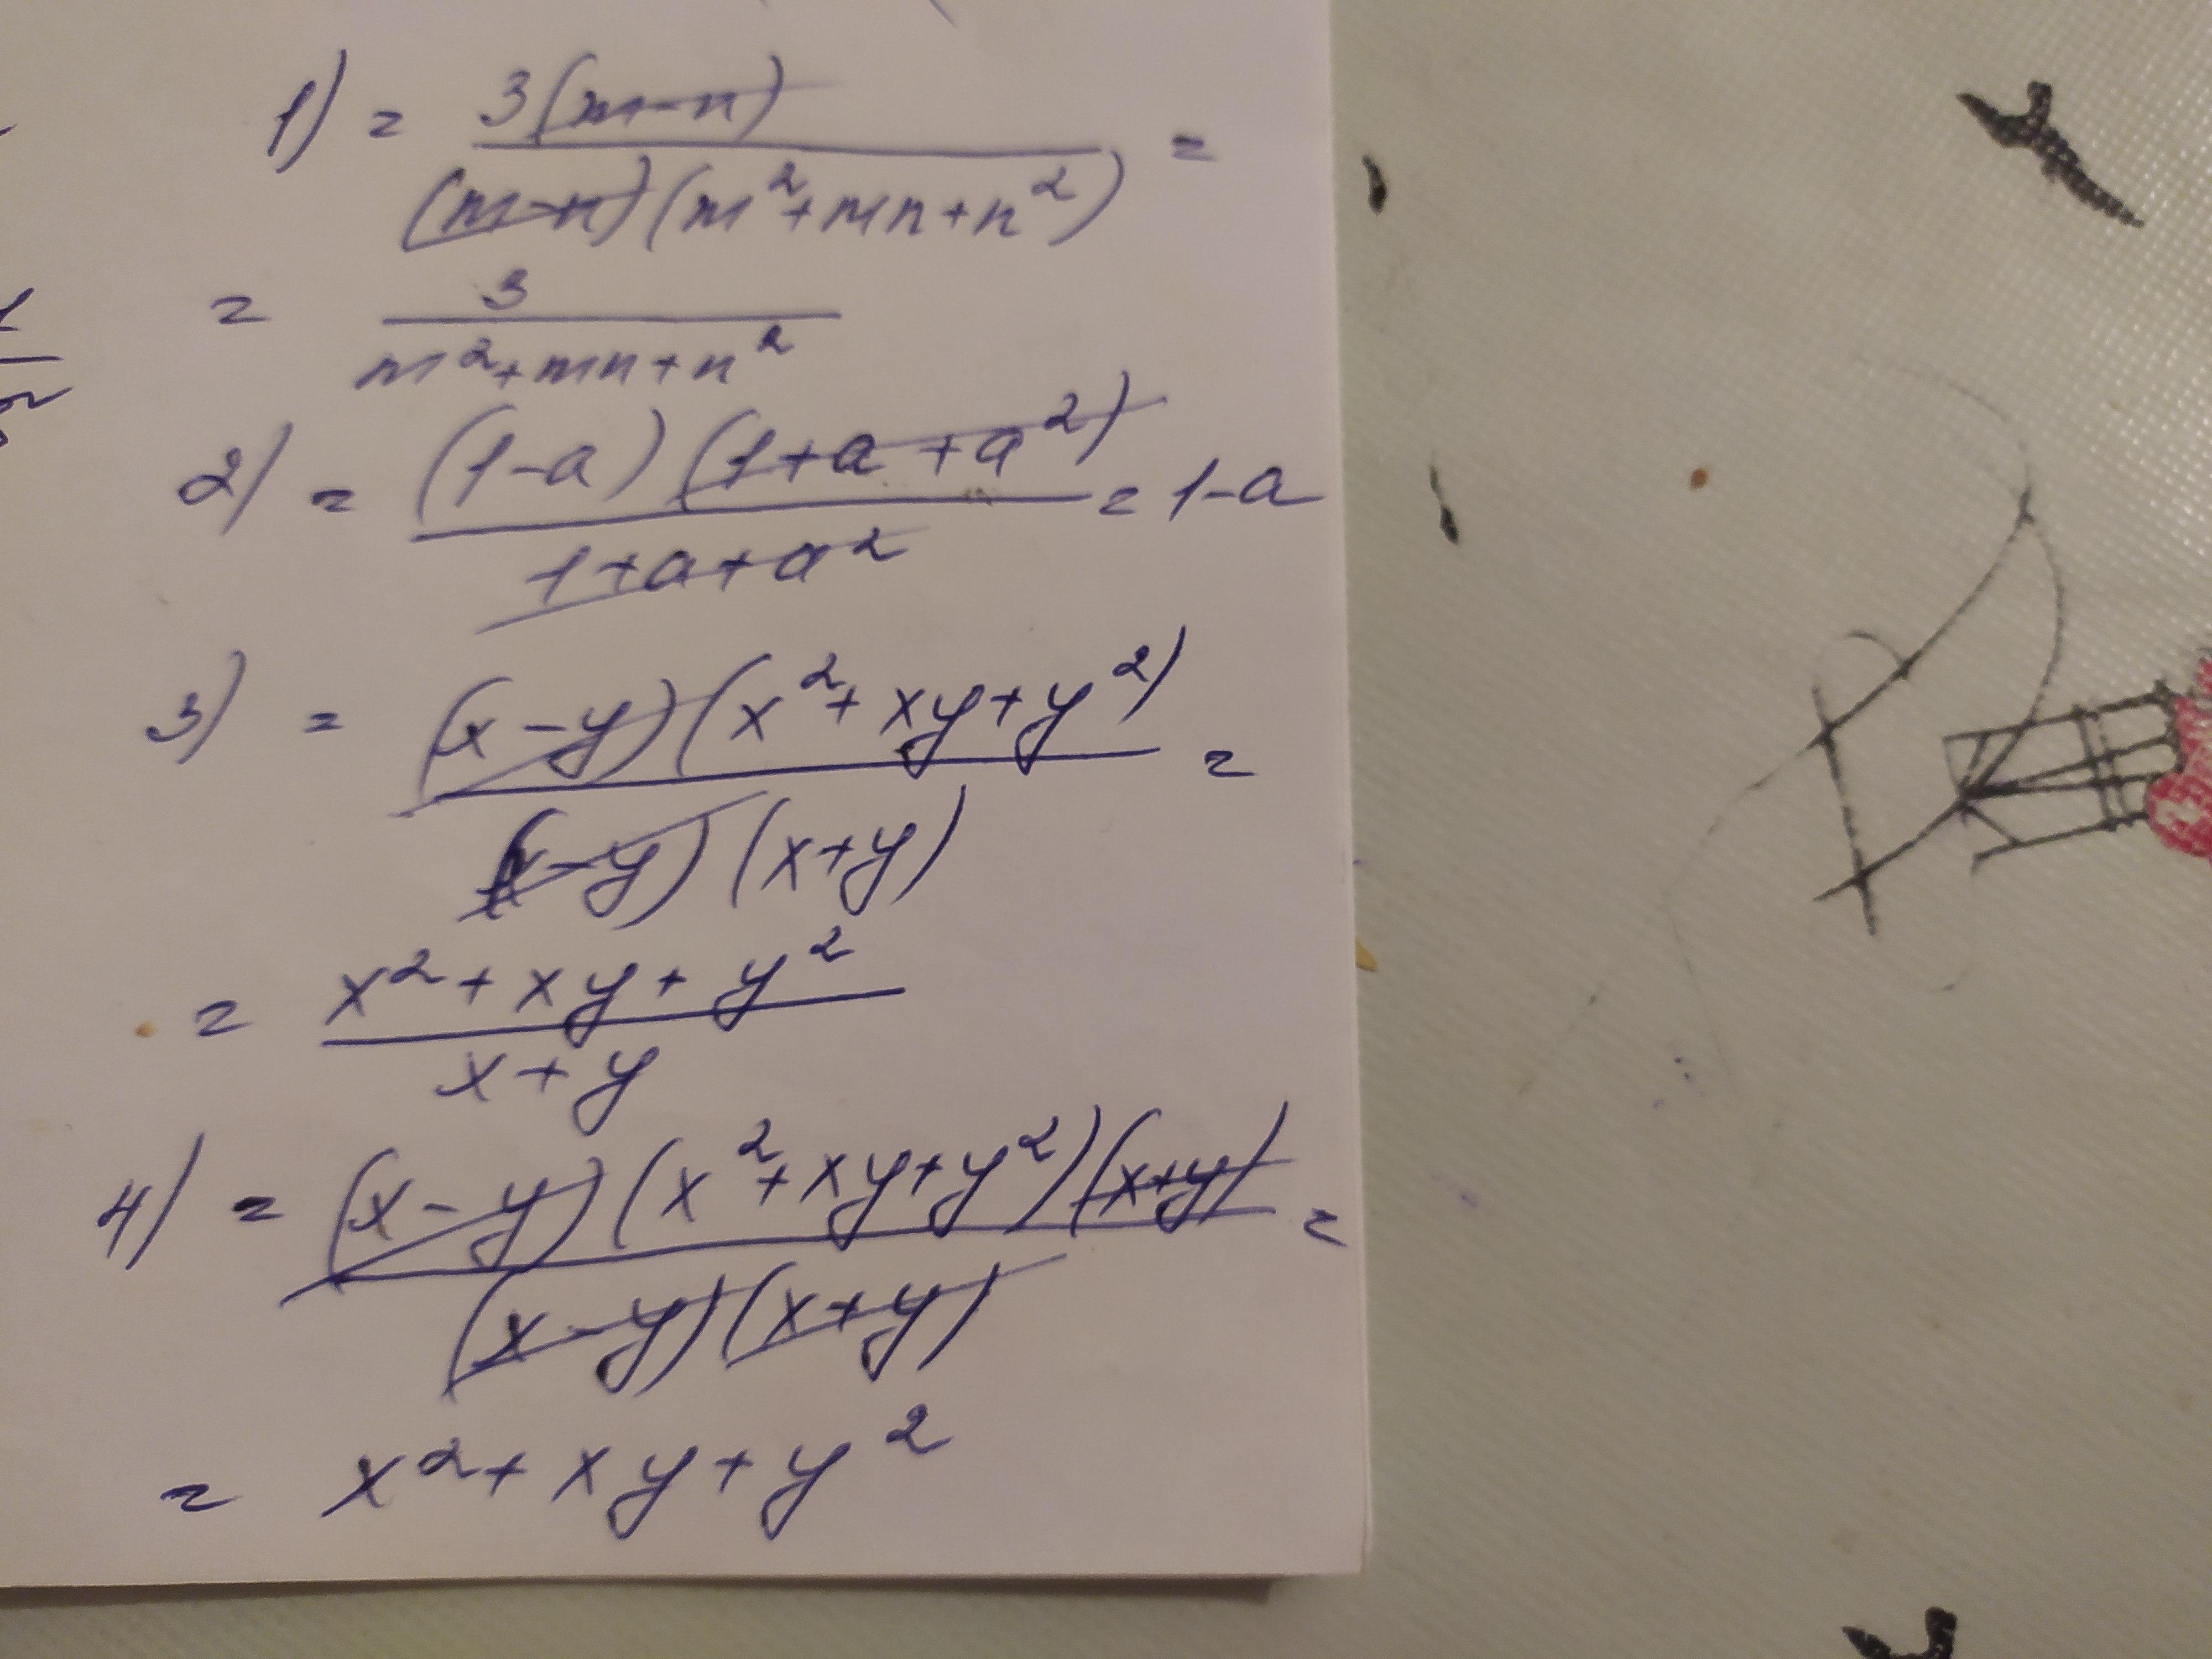 1) = 3(m-n) / (m-n)(m²+mn+n²) =
= 3 / m²+mn+n²
2) = (1-a)(1+a+a²) / 1+a+a² = 1-a
3) = (x-y)(x²+xy+y²) / (x-y)(x+y) =
= x²+xy+y² / x+y
4) = (x-y)(x²+xy+y²)(x+y) / (x-y)(x+y) =
= x²+xy+y²